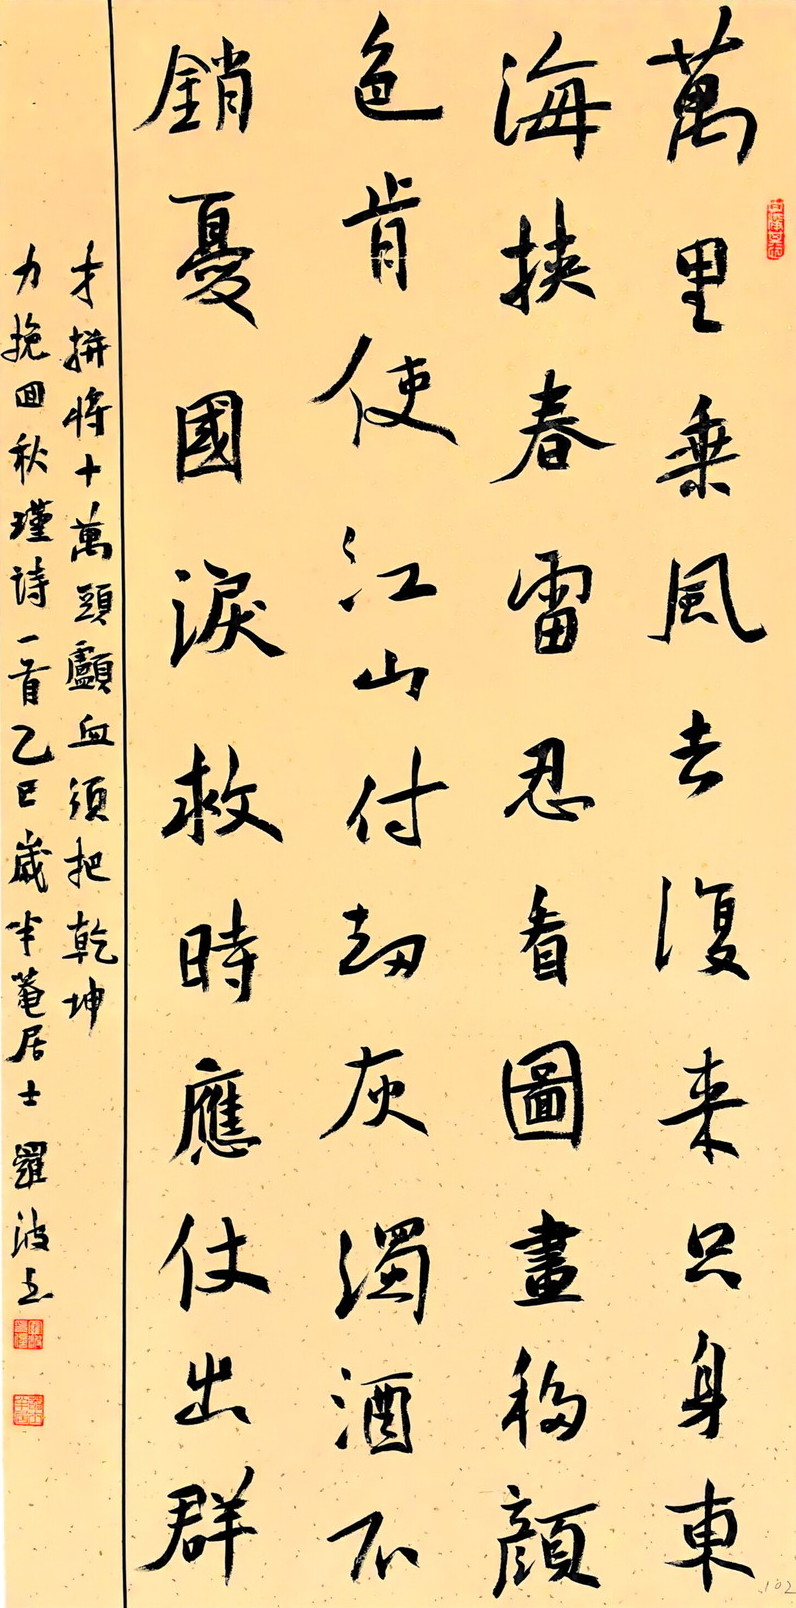 萬里乘風去復来只身東
海挾春雷忍看圖畫移顏
色肯使江山付劫灰濁酒不
銷憂國淚救時應仗出群
才拼將十萬頭顱血須把乾坤
力挽回秋瑾诗一首乙巳歲半菴居士羅波书
102